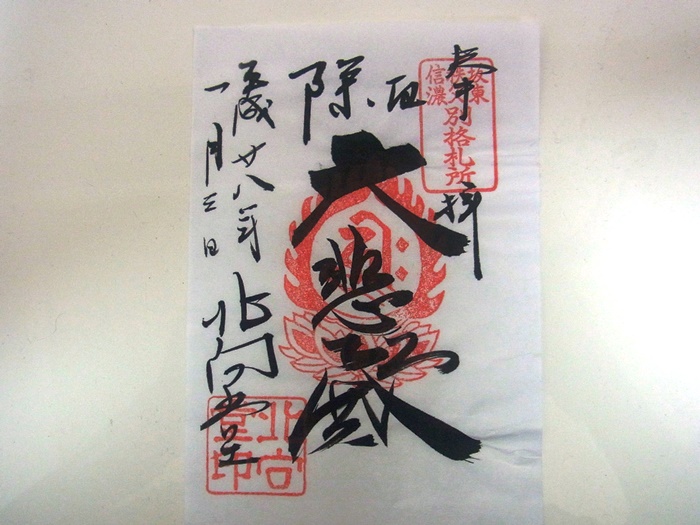 奉拝
坂東
秩父
信濃
別格札所
厄除
大悲殿
平成廿八年
一月三日
北向堂
北向
堂印